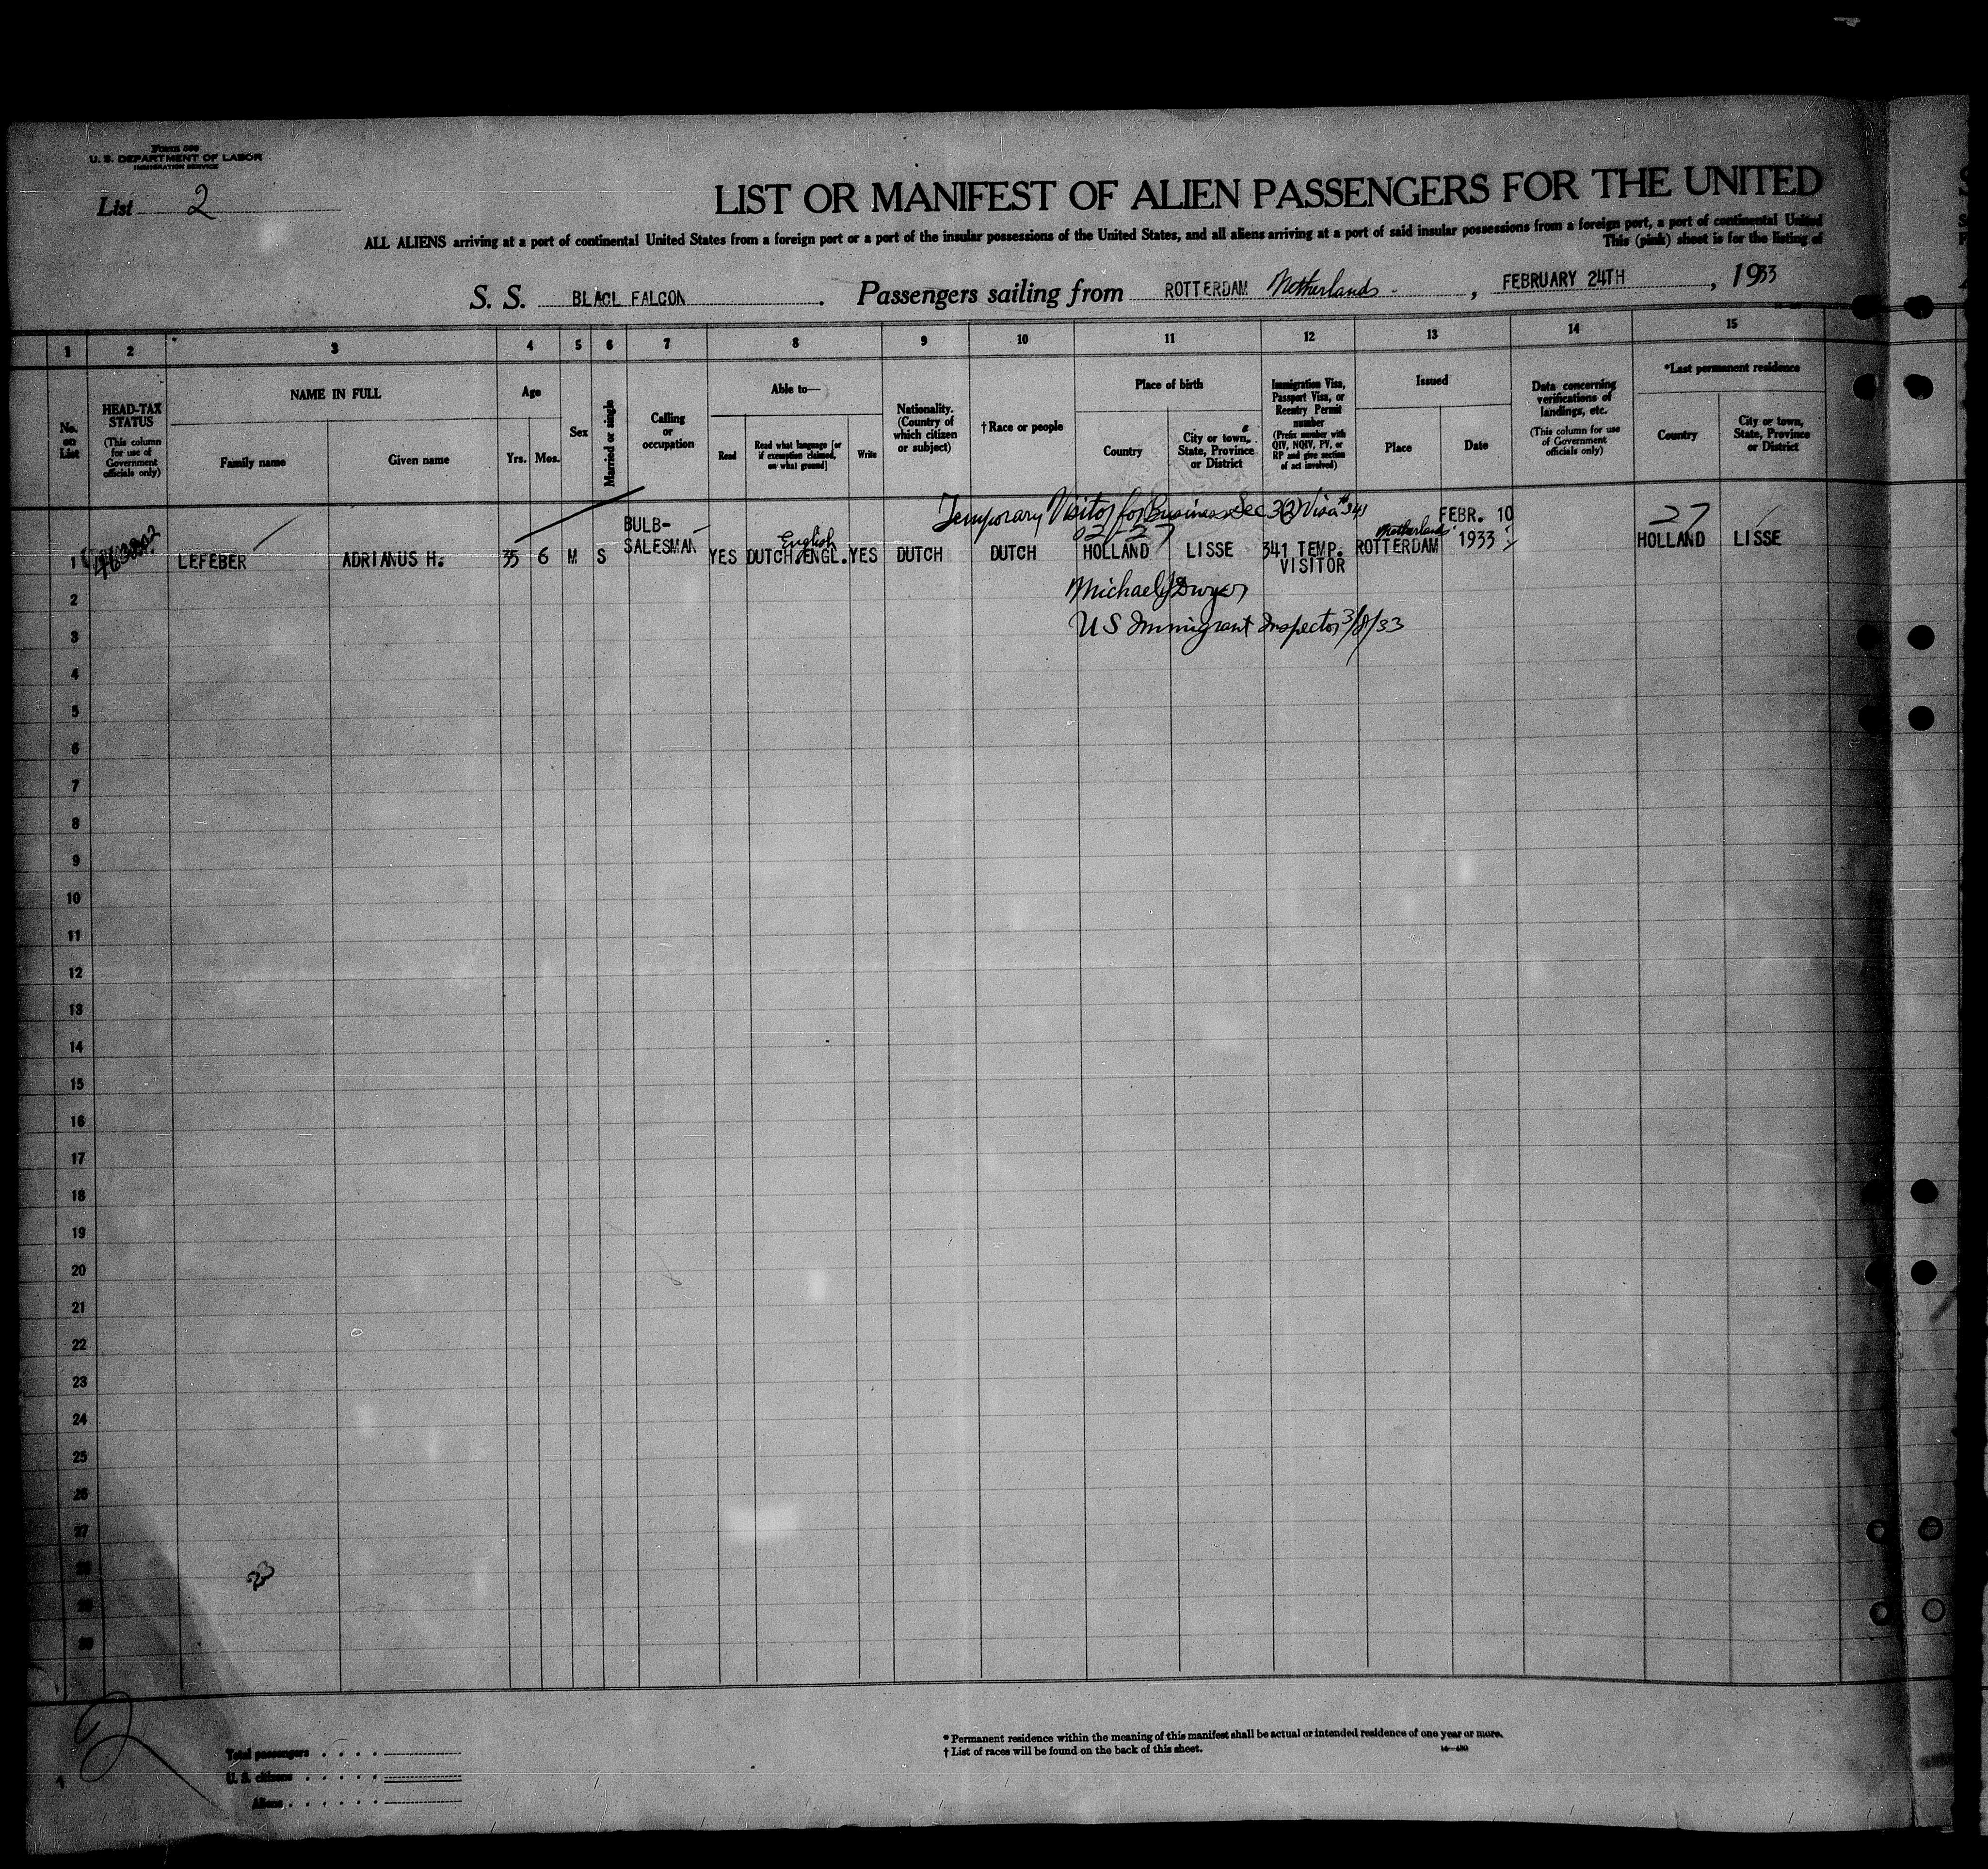 Form 500
U. S. DEPARTMENT OF LABOR
IMMIGRATION SERVICE
List 2
LIST OR MANIFEST OF ALIEN PASSENGERS FOR THE UNITED
ALL ALIENS arriving at a port of continental United States from a foreign port or a port of the insular possessions of the United States, and all aliens arriving at a port of said insular possessions from a foreign port, a port of continental United
This (pink) sheet is for the listing of
S. S. BLACL FALCON . Passengers sailing from ROTTERDAM Netherlands , FEBRUARY 24TH , 1933
1 2 3 4 5 6 7 8 9 10 11 12 13 14 15
No. on List
HEAD-TAX STATUS (This column for use of Government officials only)
NAME IN FULL
Family name
Given name
Age
Yrs. Mos.
Sex
Married or single
Calling or occupation
Able to—
Read
Read what language [or if exemption claimed, on what ground]
Write
Nationality. (Country of which citizen or subject)
†Race or people
Place of birth
Country
City or town, State, Province or District
Immigration Visa, Passport Visa, or Reentry Permit number (Prefix number with QIV, NQIV, PV, or RP and give section of act involved)
Issued
Place
Date
Data concerning verifications of landings, etc. (This column for use of Government officials only)
*Last permanent residence
Country
City or town, State, Province or District
Temporary Visitor for Business Sec 3(2) Visa #341
1 LEFEBER ADRIANUS H. 35 6 M S BULB-SALESMAN YES DUTCH.ENGL. English YES DUTCH DUTCH HOLLAND LISSE 341 TEMP. VISITOR Netherlands ROTTERDAM FEBR. 10 1933 27 HOLLAND LISSE
2 Michael J Dwyer
3 US Immigrant Inspector 3/8/33
4
5
6
7
8
9
10
11
12
13
14
15
16
17
18
19
20
21
22
23
24
25
26
27
28
29
30
Total passengers
U. S. citizens
Aliens
* Permanent residence within the meaning of this manifest shall be actual or intended residence of one year or more.
† List of races will be found on the back of this sheet.
14—430